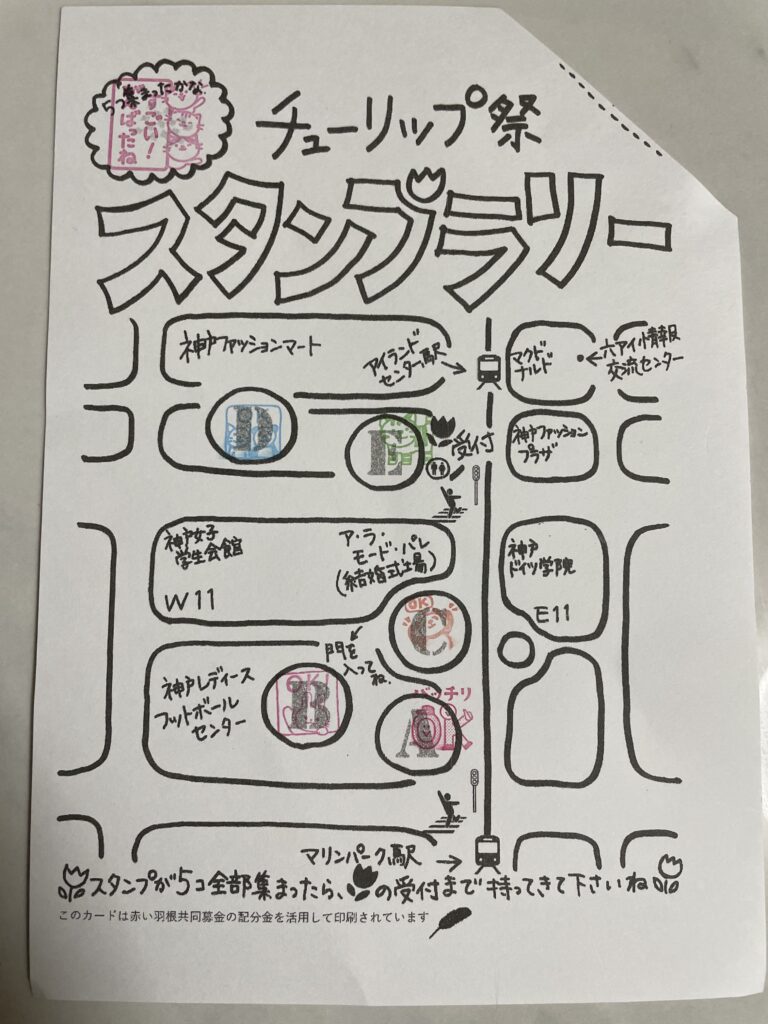 5つ集まったかな
すごい!
ばったね
チューリップ祭
スタンプラリー
神戸ファッションマート
アイランド
センター駅
マクド
ナルド
六アイ情報
交流センター
D
E
受付
神戸ファッション
プラザ
神戸女子
学生会館
W11
ア・ラ・
モード・パレ
(結婚式場)
神戸
ドイツ学院
E11
OK
C
門を
入ってね
神戸レディース
フットボール
センター
OK!
B
バッチリ
A
マリンパーク駅
スタンプが5コ全部集まったら、
の受付まで持ってきて下さいね
このカードは赤い羽根共同募金の配分金を活用して印刷されています